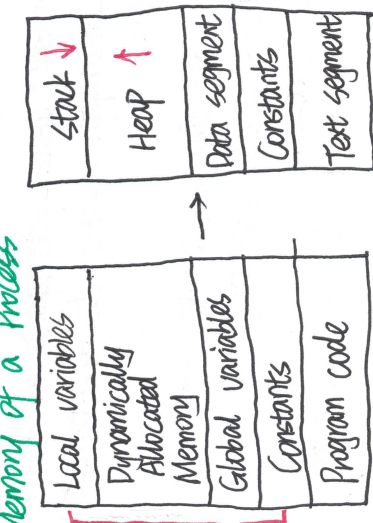 Memory of a Process
Local variables
Dynamically
Allocated
Memory
Global variables
Constants
Program code
Stack
Heap
Data segment
Constants
Text segment